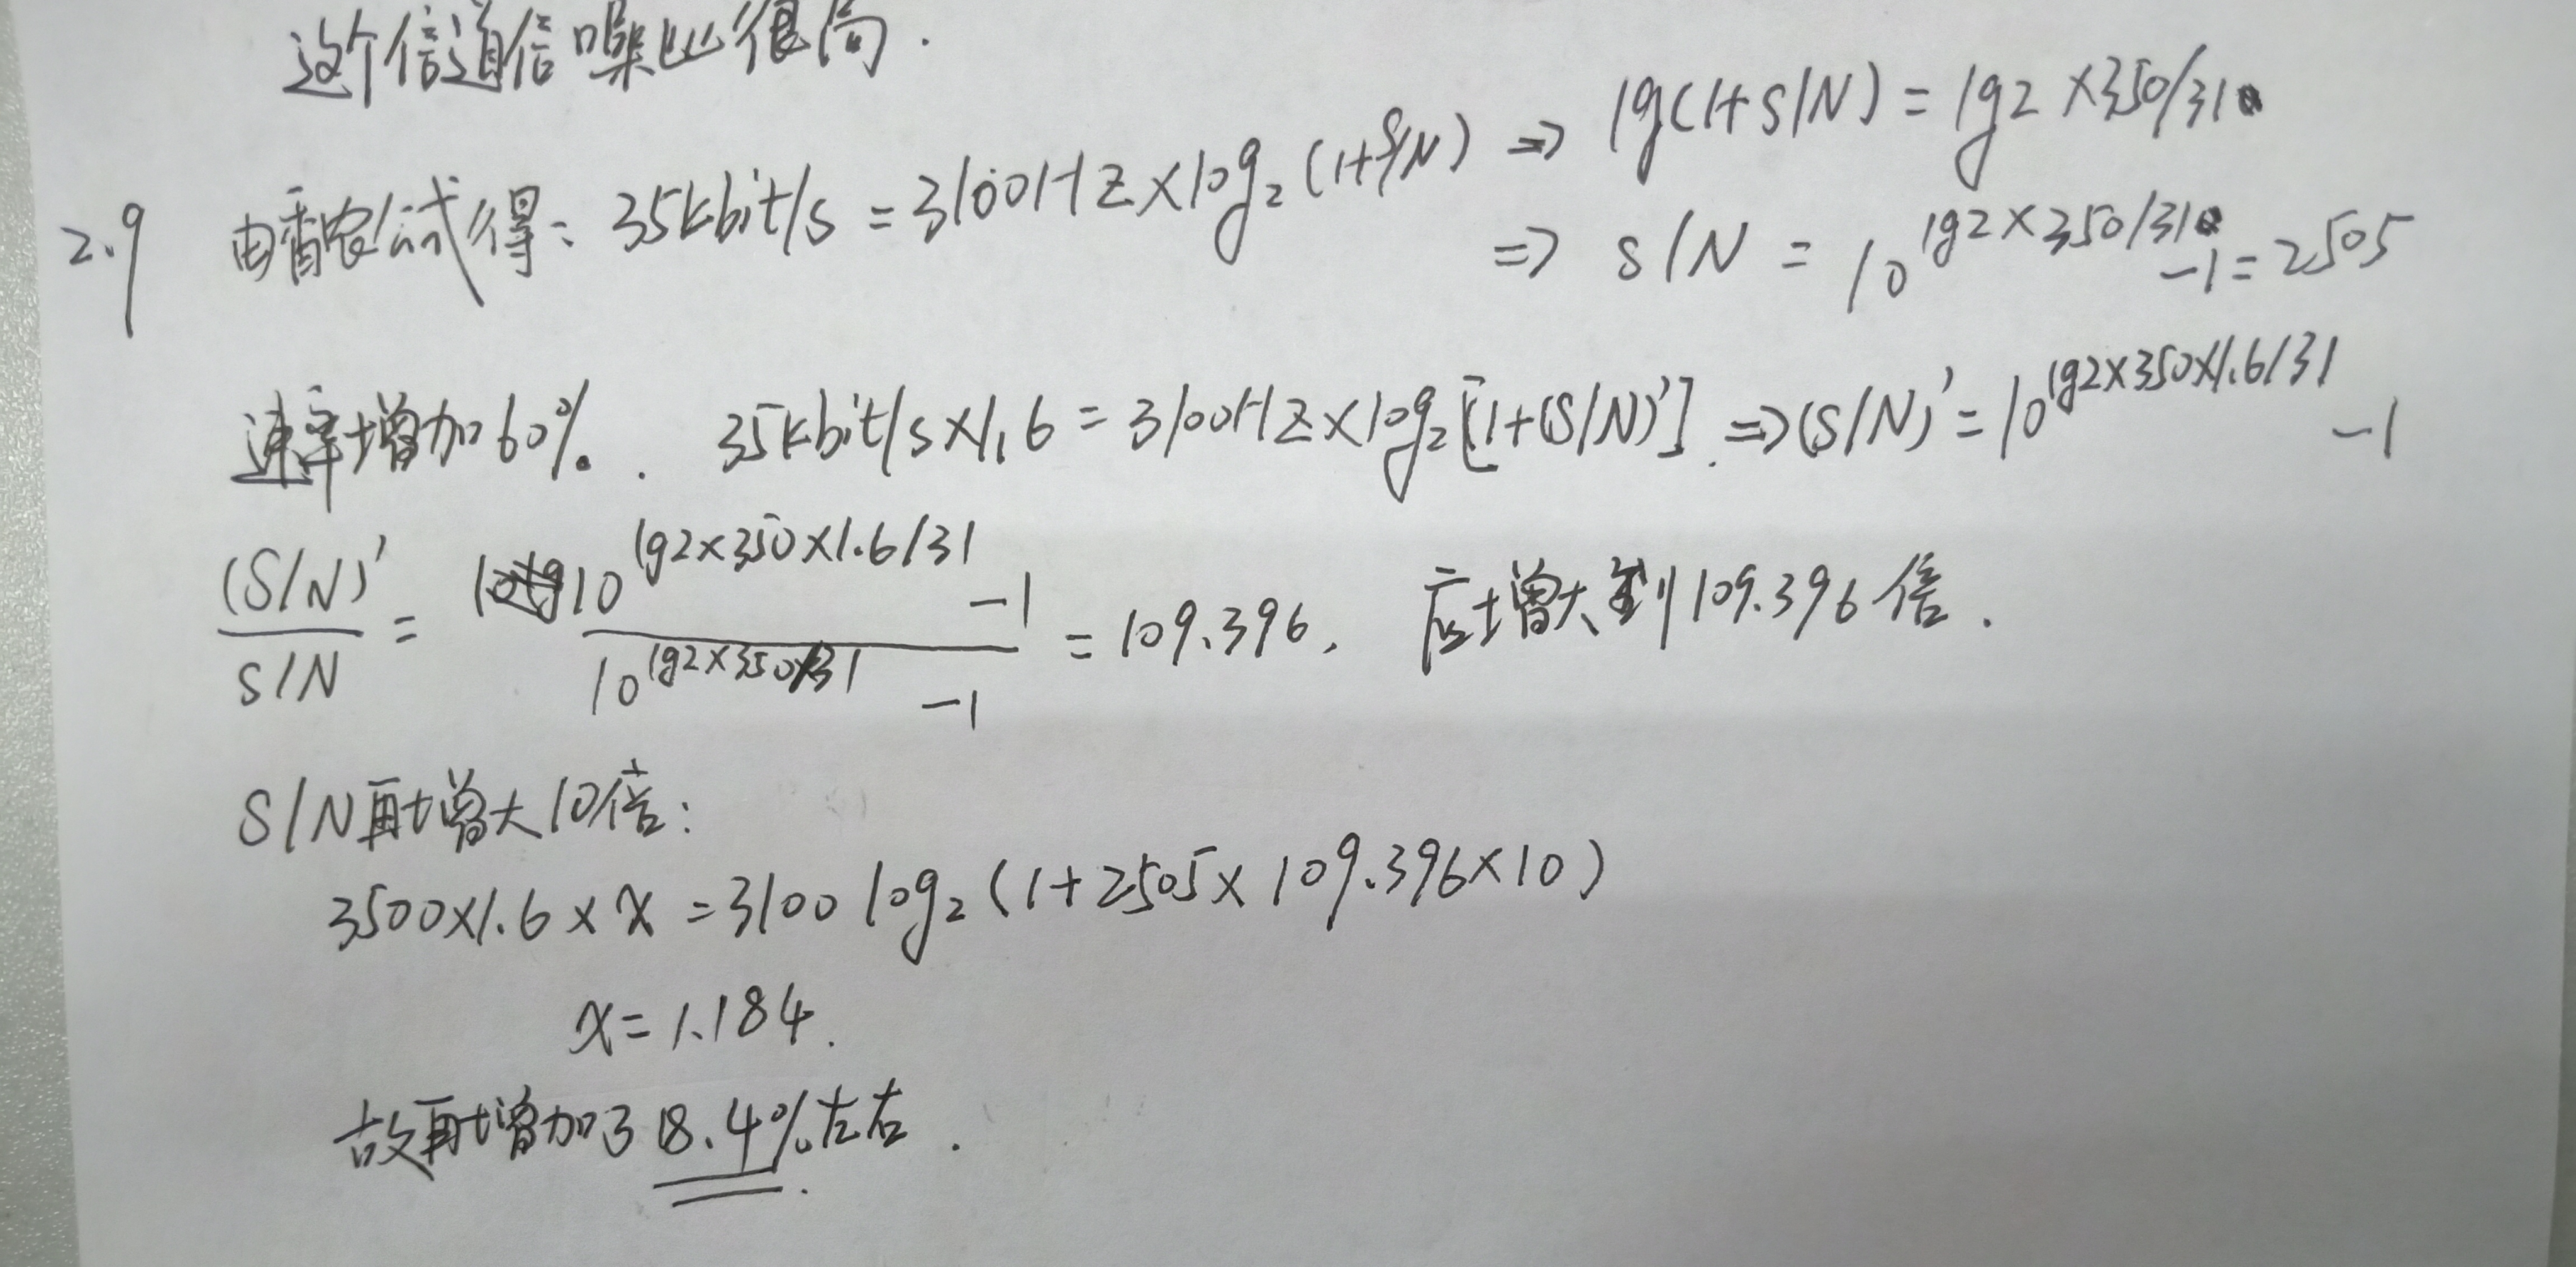 这个信道信噪比很高.
2.9 由香农公式得: 35kbit/s = 3100Hz×log₂(1+S/N) ⇒ lg(1+S/N) = lg2×350/31
⇒ S/N = 10^(lg2×350/31) -1 = 2505
速率增加60%. 35kbit/s×1.6 = 3100Hz×log₂[1+(S/N)'] ⇒ (S/N)' = 10^(lg2×350×1.6/31) -1
(S/N)' / S/N = 10^(lg2×350×1.6/31) -1 / 10^(lg2×350/31) -1 = 109.396, 应增大到109.396倍.
S/N再增大10倍:
3500×1.6×x = 3100 log₂(1+2505×109.396×10)
x = 1.184.
故再增加了18.4%左右.